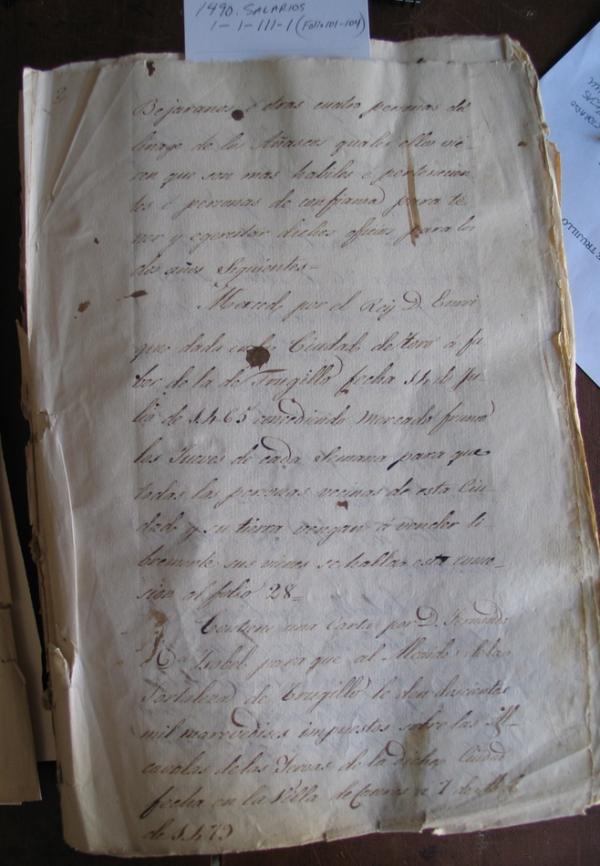 1490. SALARIOS
1-1-111-1 (Folio 101-104)
TRUJILLO
Bejaranos é otras cuatro personas de
linage de los Añascos quales ellos vie
ren que son mas habiles é pertenecien
tes é personas de confianza para te
ner y egercitar dichos oficios para los
dos años siguientes=
Merced por el Rey D. Enrri
que dada en la Ciudad de Toro á fa
bor de la de Trugillo fecha 14 de Ju
lio de 1465 concediendo mercado franco
los Jueves de cada Semana para que
todas las personas vecinas de esta Ciu
dad y su tierra vengan á vender li
bremente sus vienes se halla esta
al folio 28=
Contiene una Carta por D. Fernando
Isabel para que al Alcaide de la
Fortaleza de Trugillo le den doscientos
mil maravedises impuestos sobre las Al
cavalas de las Yervas de la dicha Ciudad
fecha en la Villa de Caceres a 7 de
de 1479